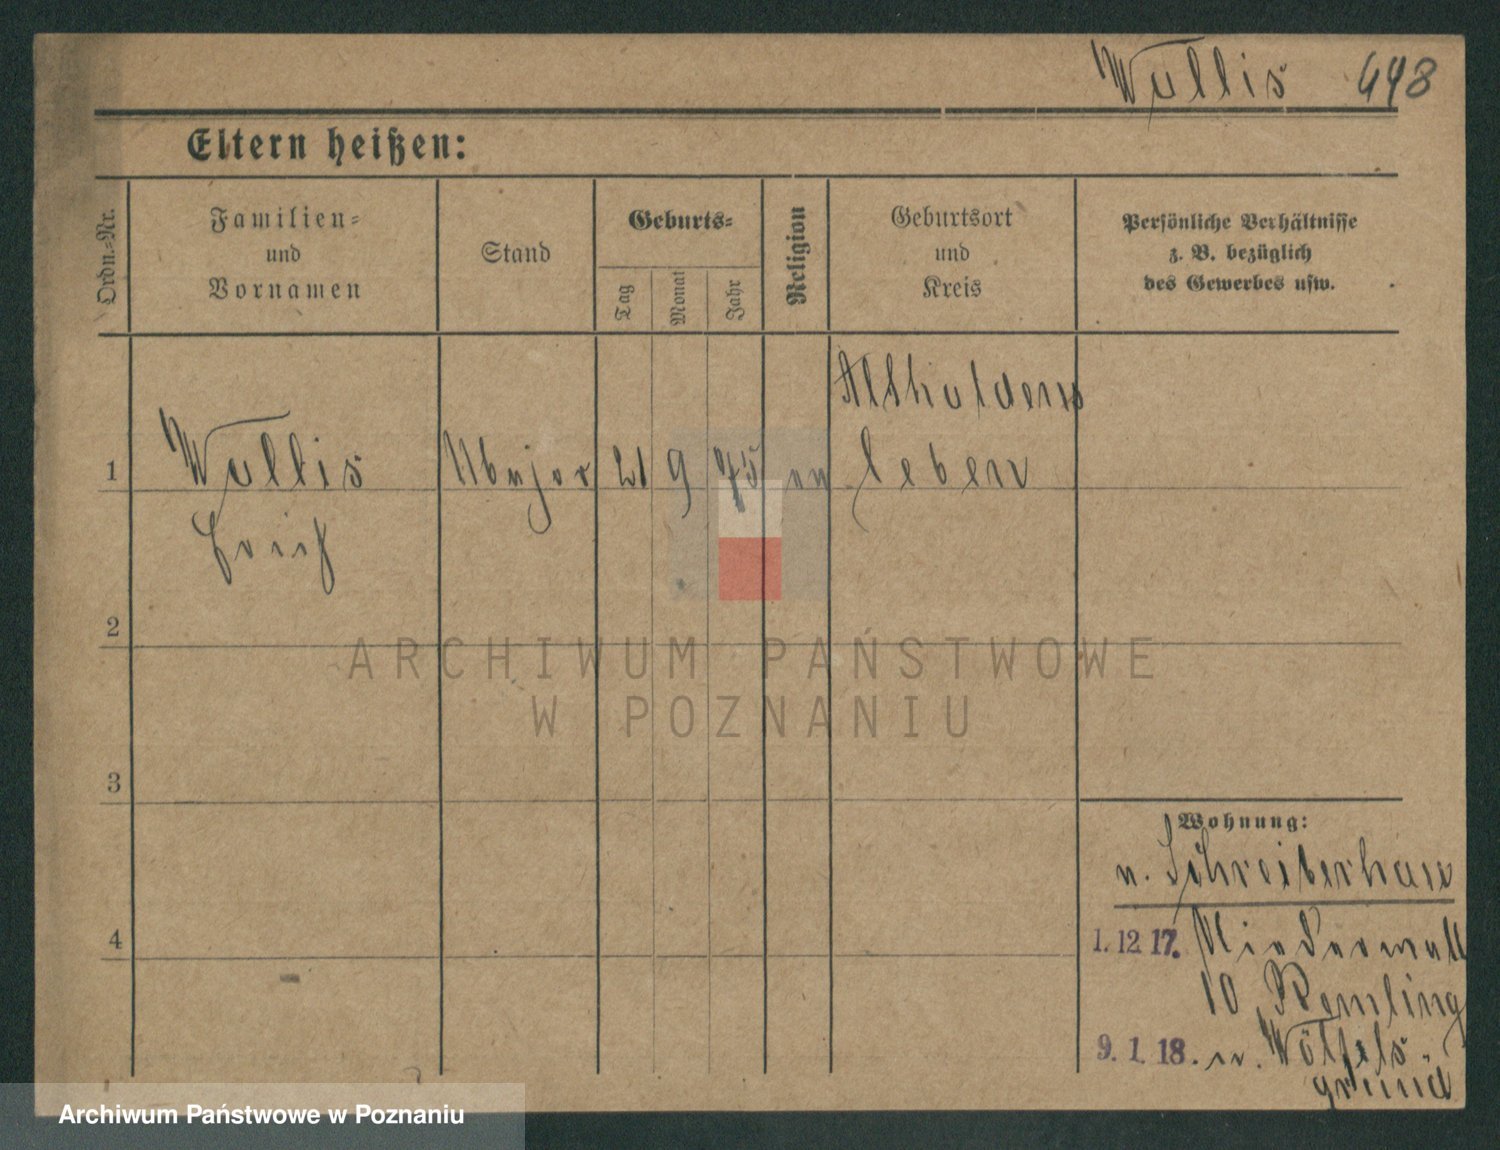 Wallis 448
Eltern heißen:
Ordn.-Nr.
Familien-
und
Vornamen
Stand
Geburts-
Tag
Monat
Jahr
Religion
Geburtsort
und
Kreis
Persönliche Verhältnisse
z. B. bezüglich
des Gewerbes usw.
Althaldens
1 Wallis Major 21 9 75 ev leben
Erich
2
3
4
Wohnung:
n. Schreiberhau
1. 12 17. Niederwall
10
9. 1. 18. n. Wölfels-
grund
ARCHIWUM PAŃSTWOWE
W POZNANIU
Archiwum Państwowe w Poznaniu